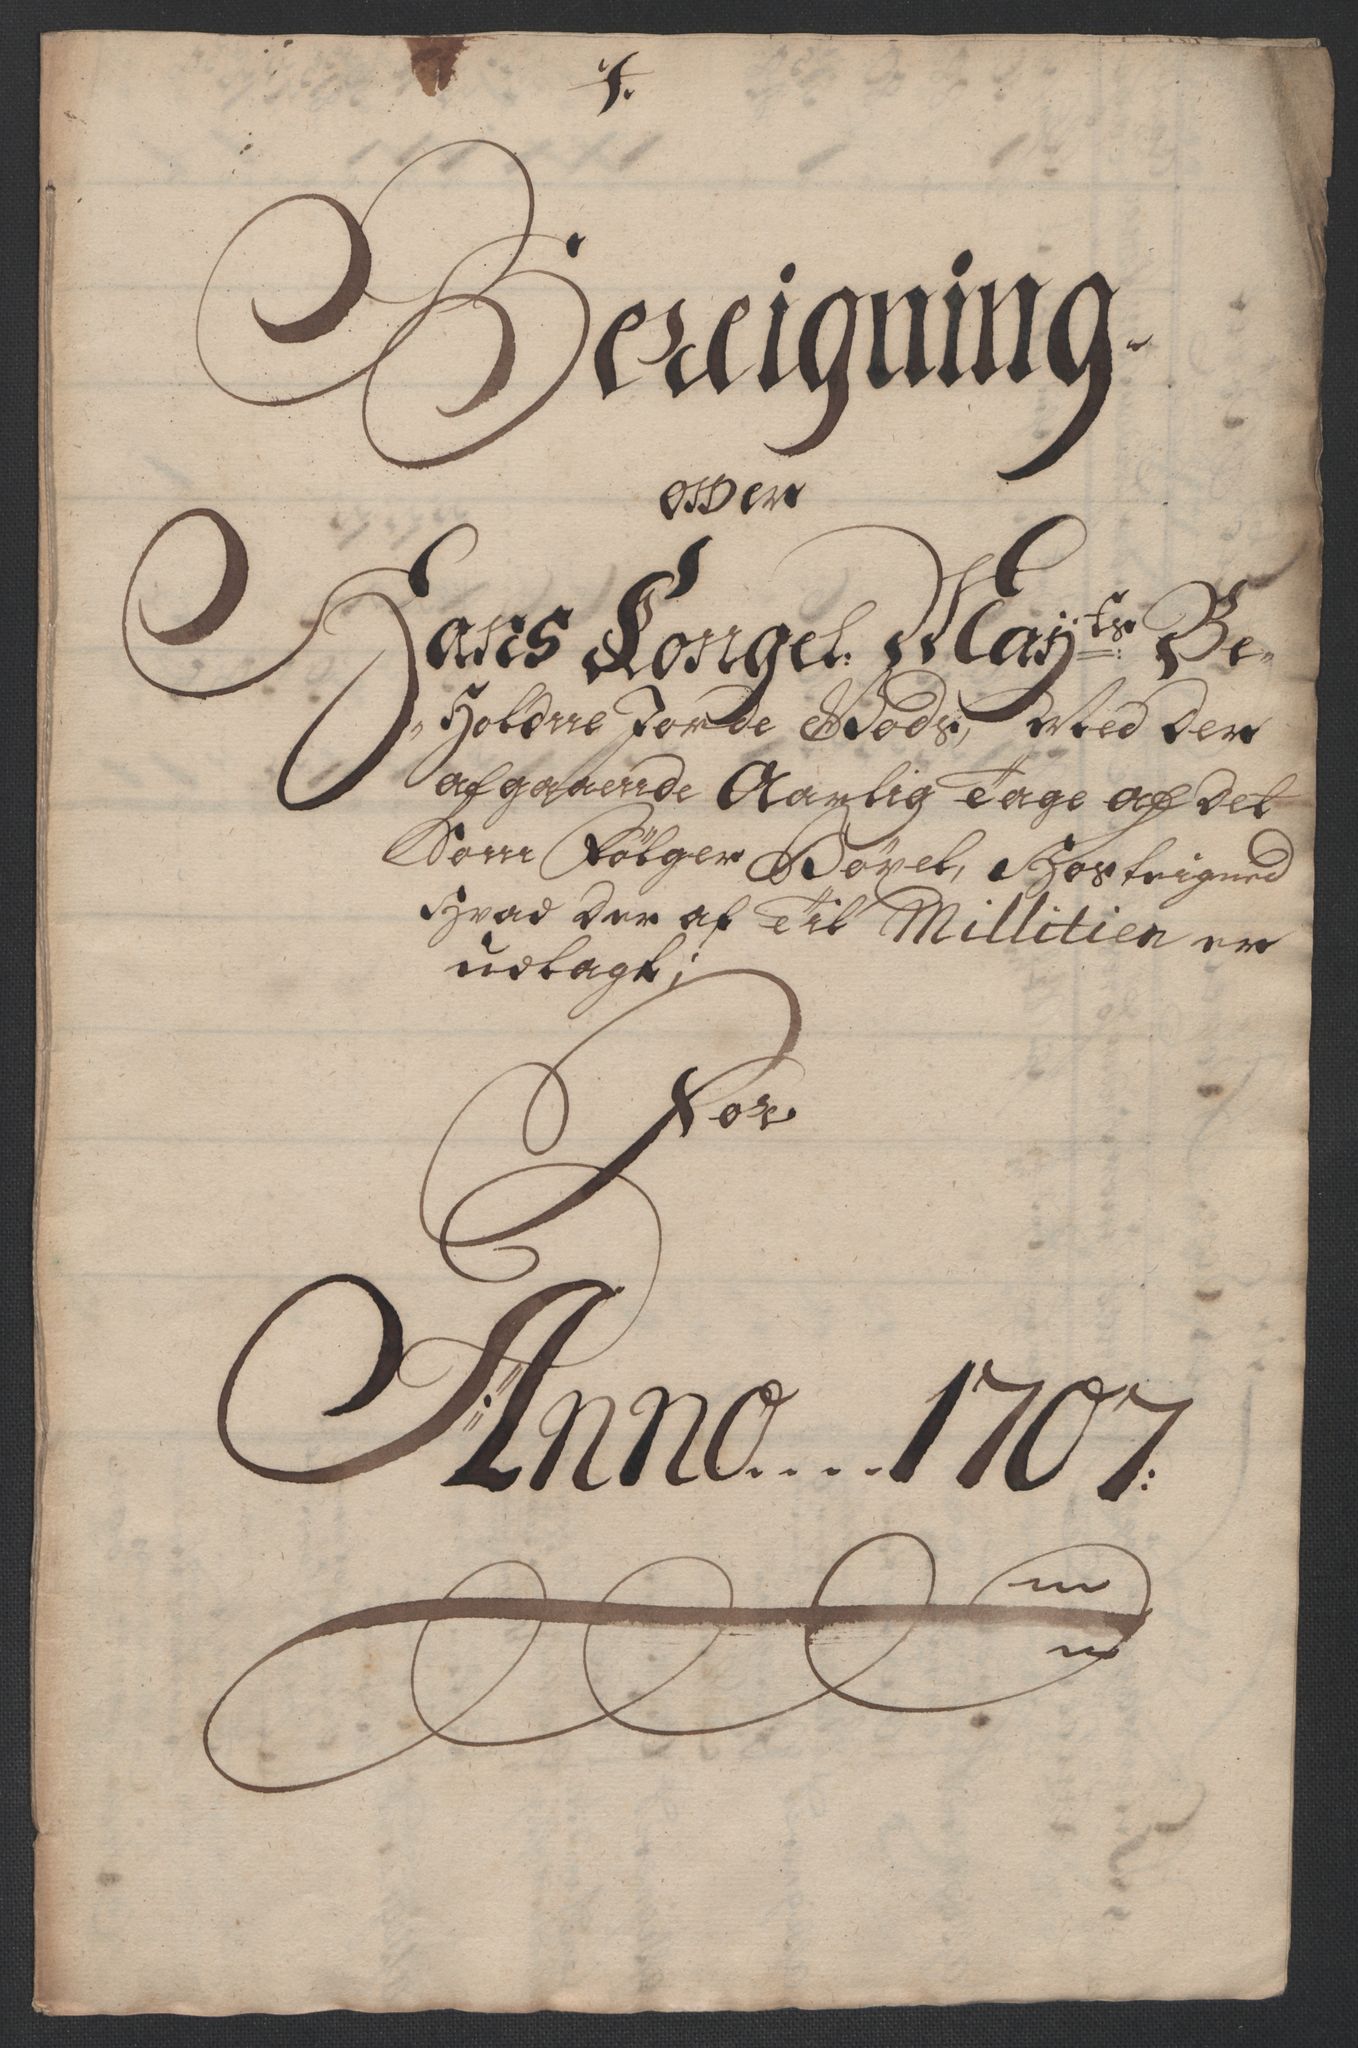 1.
Bereigning
over
Hans Kongel: Mayts: Be-
Holdne Jorde Gods, Med Der
afgaaende Aarlig Tage af Det
Som Følger Høyel, Hosteigned
Hvad Der af Til Millitien er
udlagt;
For
Anno.... 1707: